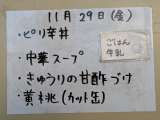 11月29日(金)
・ピリ辛丼
・中華スープ
・きゅうりの甘酢づけ
・黄桃(カット缶)
ごはん
牛乳